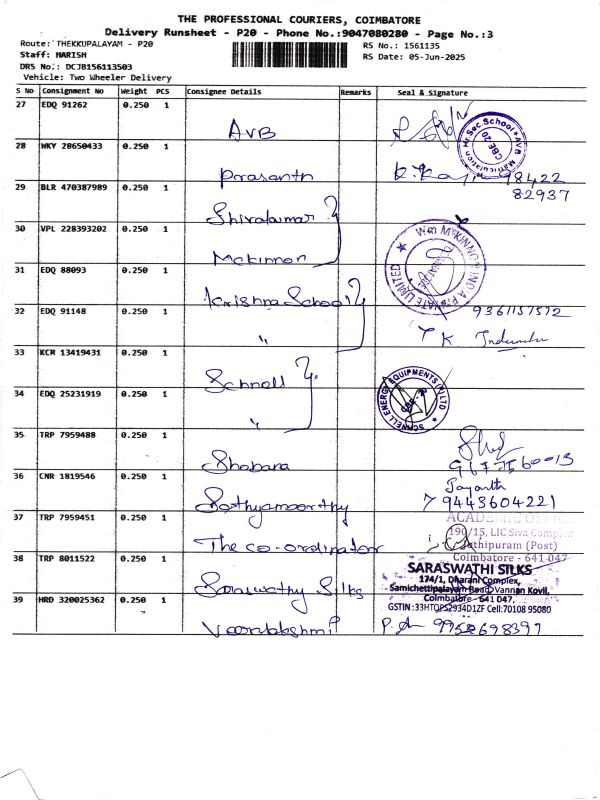 THE PROFESSIONAL COURIERS, COIMBATORE
Delivery Runsheet - P20 - Phone No.:9047080280 - Page No.:3
Route: THEKKUPALAYAM - P20
RS No.: 1561135
Staff: HARISH
RS Date: 05-Jun-2025
DRS No.: DCJB156113503
Vehicle: Two Wheeler Delivery
S No Consignment No Weight PCS Consignee Details Remarks Seal & Signature
27 EDQ 91262 0.250 1 AVB
AVB Matriculation Hr.Sec.School CBE-20
28 WKY 28650433 0.250 1 Prasanth 98422
82937
29 BLR 470387989 0.250 1 Shivakumar
30 VPL 228393202 0.250 1 Mckinnon
Wm McKINNON INDIA PRIVATE LIMITED
31 EDQ 88093 0.250 1 Krishna School
9361157512
32 EDQ 91148 0.250 1 "
T K
33 KCM 13419431 0.250 1 Schnell
SCHNELL ENERGY EQUIPMENTS (P) LTD
CBE - 20
34 EDQ 25231919 0.250 1 "
35 TRP 7959488 0.250 1 Shobana
36 CNR 1819546 0.250 1 Sathyamoorthy
Jayanth
9443604221
37 TRP 7959451 0.250 1 The co-ordinator
ACADEMIC
190/15, LIC Siva Complex
(Post)
Coimbatore - 641 047
38 TRP 8011522 0.250 1 Saraswathy Silks
SARASWATHI SILKS
174/1, Dharani Complex,
Samichettipalayam Road, Vannan Kovil,
Coimbatore - 641 047.
GSTIN :33HTQPS2934D1ZF Cell:70108 95080
39 HRD 320025362 0.250 1 Varalakshmi